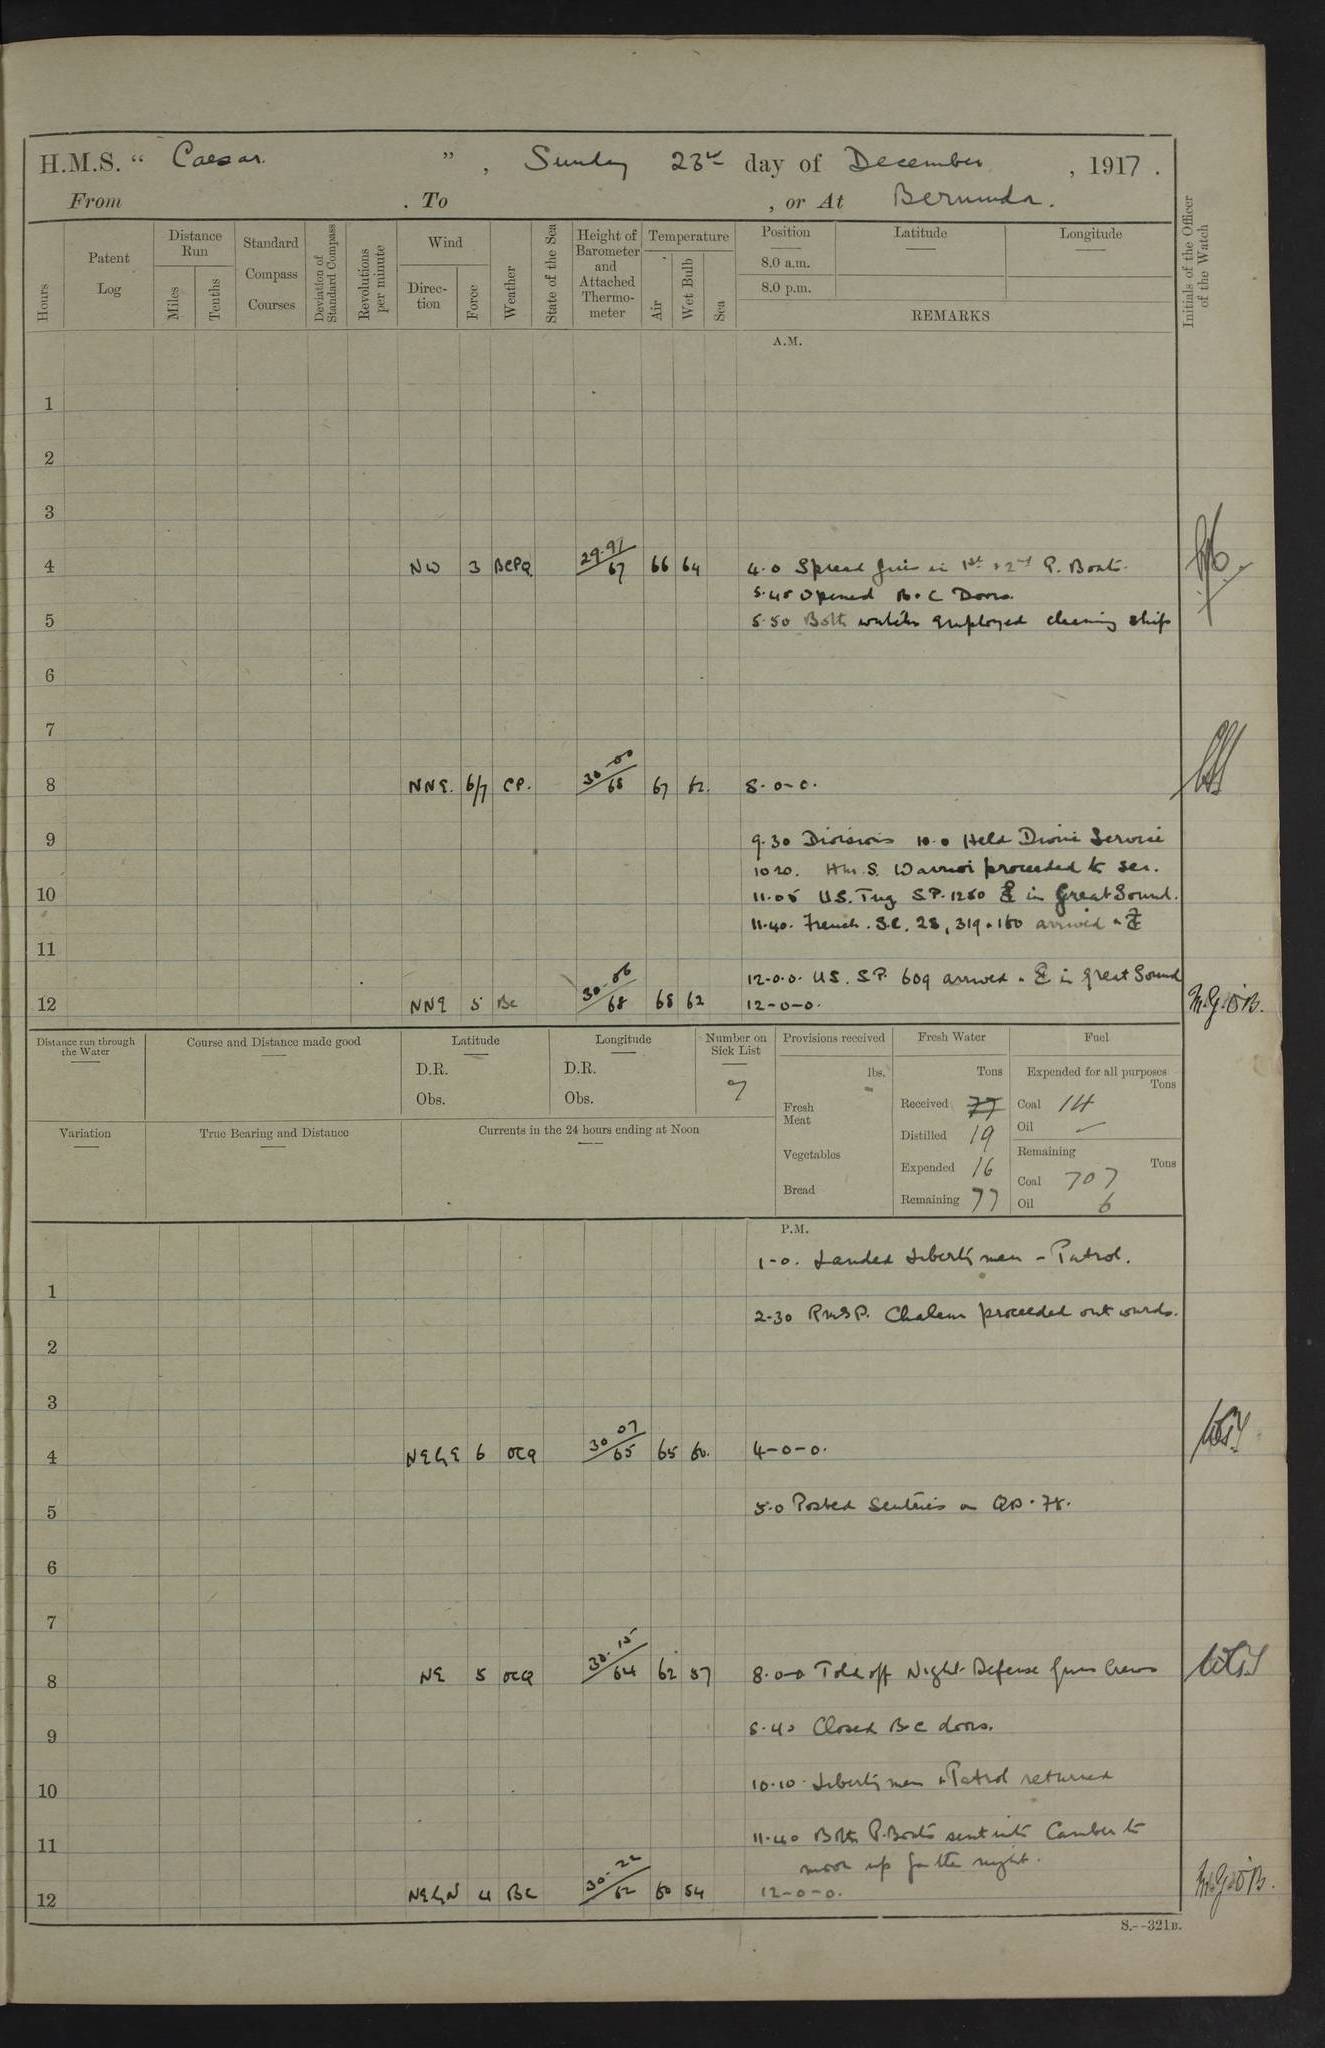 H.M.S. " Caesar. " , Sunday 23rd day of December , 1917 .
From . To , or At Bermuda.
Hours
Patent Log
Distance Run
Miles
Tenths
Standard Compass Courses
Deviation of Standard Compass
Revolutions per minute
Wind
Direc- tion
Force
Weather
State of the Sea
Height of Barometer and Attached Thermo- meter
Temperature
Air
Wet Bulb
Sea
Position
8.0 a.m.
8.0 p.m.
Latitude
Longitude
REMARKS
Initials of the Officer of the Watch
A.M.
1
2
3
4 NW 3 BCPQ 29.97/67 66 64 4.0 Spread in 1st & 2nd P. Boats.
5.45 Opened B.C Doors.
5 5.50 Both watches employed cleaning ship
6
7
8 NNE. 6/7 CP. 30.00/68 67 62. 8-0-0.
9 9.30 Divisions 10.0 Held Divine Service
10 20. H.M.S. Warrior proceeded to sea.
10 11.05 U.S. Tug S.P. 1250 in Great Sound.
11.40. French. S.C. 28, 319 & 160 arrived &
11
12-0.0. US. S.P. 609 arrived & in Great Sound
12 NNE 5 BC 30.06/68 68 62 12-0-0. M.G.O'B.
Distance run through the Water
Course and Distance made good
Latitude
D.R.
Obs.
Longitude
D.R.
Obs.
Number on Sick List
7
Variation
True Bearing and Distance
Currents in the 24 hours ending at Noon
Provisions received
lbs.
Fresh Meat
Vegetables
Bread
Fresh Water
Tons
Received 77
Distilled 19
Expended 16
Remaining 77
Fuel
Expended for all purposes
Tons
Coal 14
Oil -
Remaining
Tons
Coal 707
Oil 6
P.M.
1-0. Landed Liberty men - Patrol.
1
2-30 RMSP. Chaleur proceeded outwards.
2
3
4 NE by E 6 OCQ 30.07/65 65 60. 4-0-0.
5 5.0 Posted Sentries on
6
7
8 NE 5 OCQ 30.15/64 62 57 8.0-0 Told off Night Defense Guns Crews
9 8.40 Closed B.C doors.
10 10.10 Liberty men & Patrol returned
11 11.40 Both P. Boats sent into Camber to
moor up for the night.
12 NE by N 4 BC 30.22/62 60 54 12-0-0. M.G.O'B.
S.--321B.